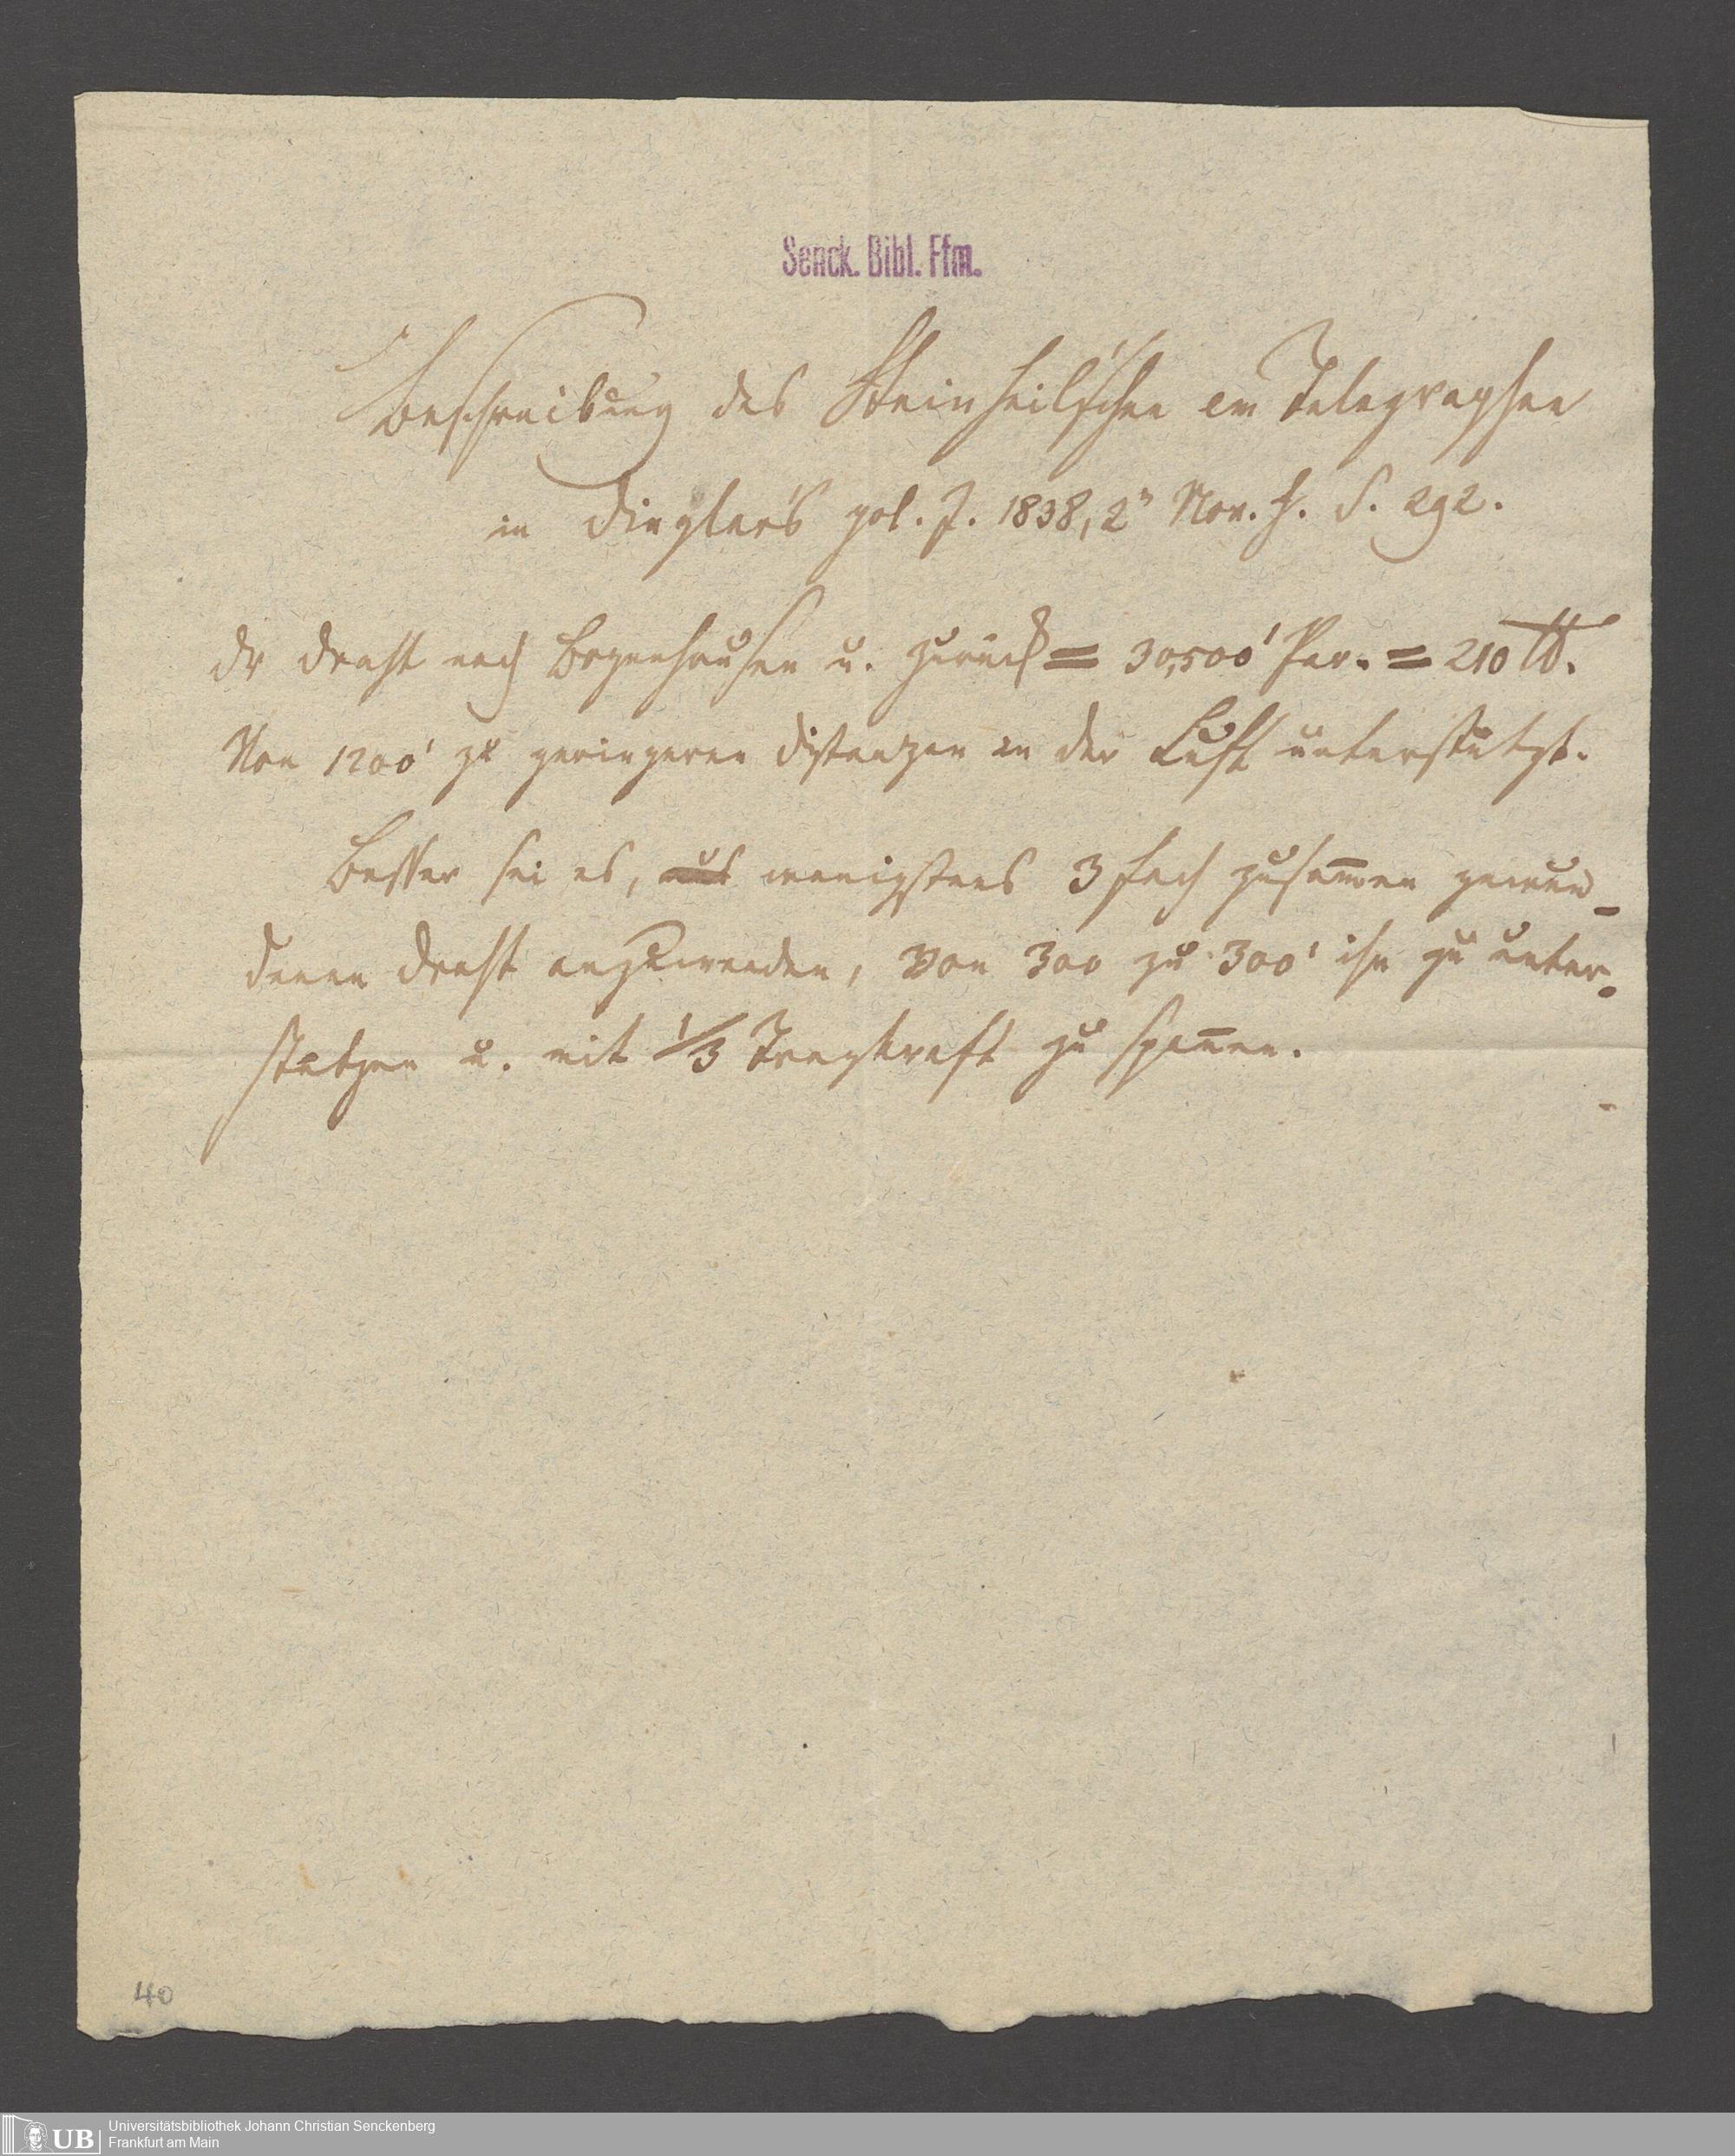 Senck. Bibl. Ffm.
Beschreibung des Steinheil'schen em Telegraphen
in Dingler's pol. J. 1838, 2s Nov. H. S. 292.
Dr Draht nach Bogenhausen u. zurück = 30,500' Par. = 210 ℔.
Von 1200' zu geringeren Distanzen in der Luft unterstützt.
Besser sei es, aus wenigstens 3 fach zusam̅en gewun-
denen Draht anzuwenden, von 300 zu 300' ihn zu unter-
stützen u. mit 1/3 Tragkraft zu span̅en.
40
UB
Universitätsbibliothek Johann Christian Senckenberg
Frankfurt am Main